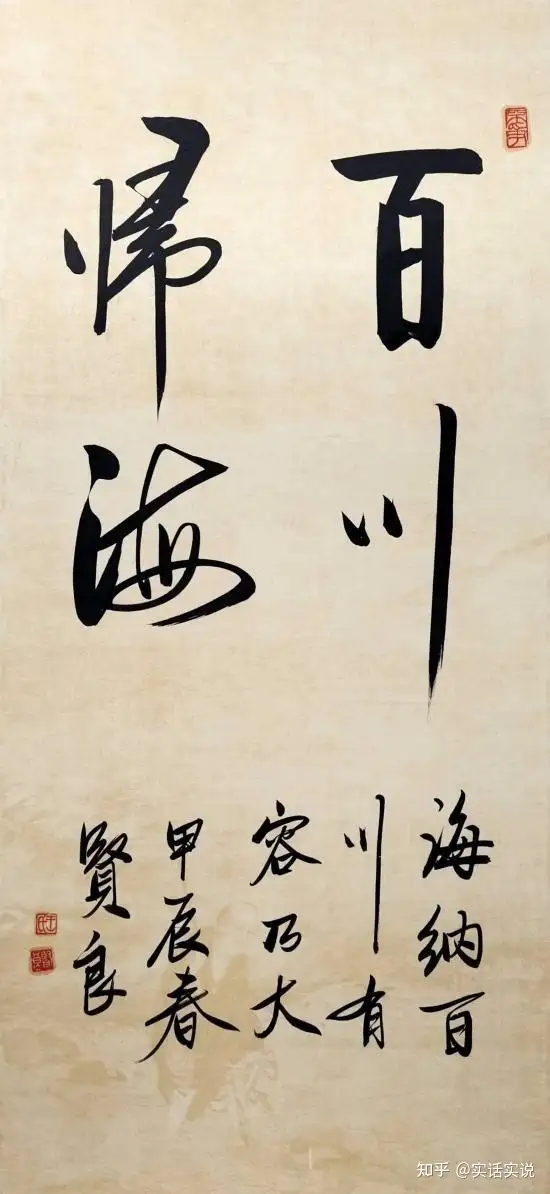 百川
歸海
海纳百
川有
容乃大
甲辰春
賢良
知乎 @实话实说